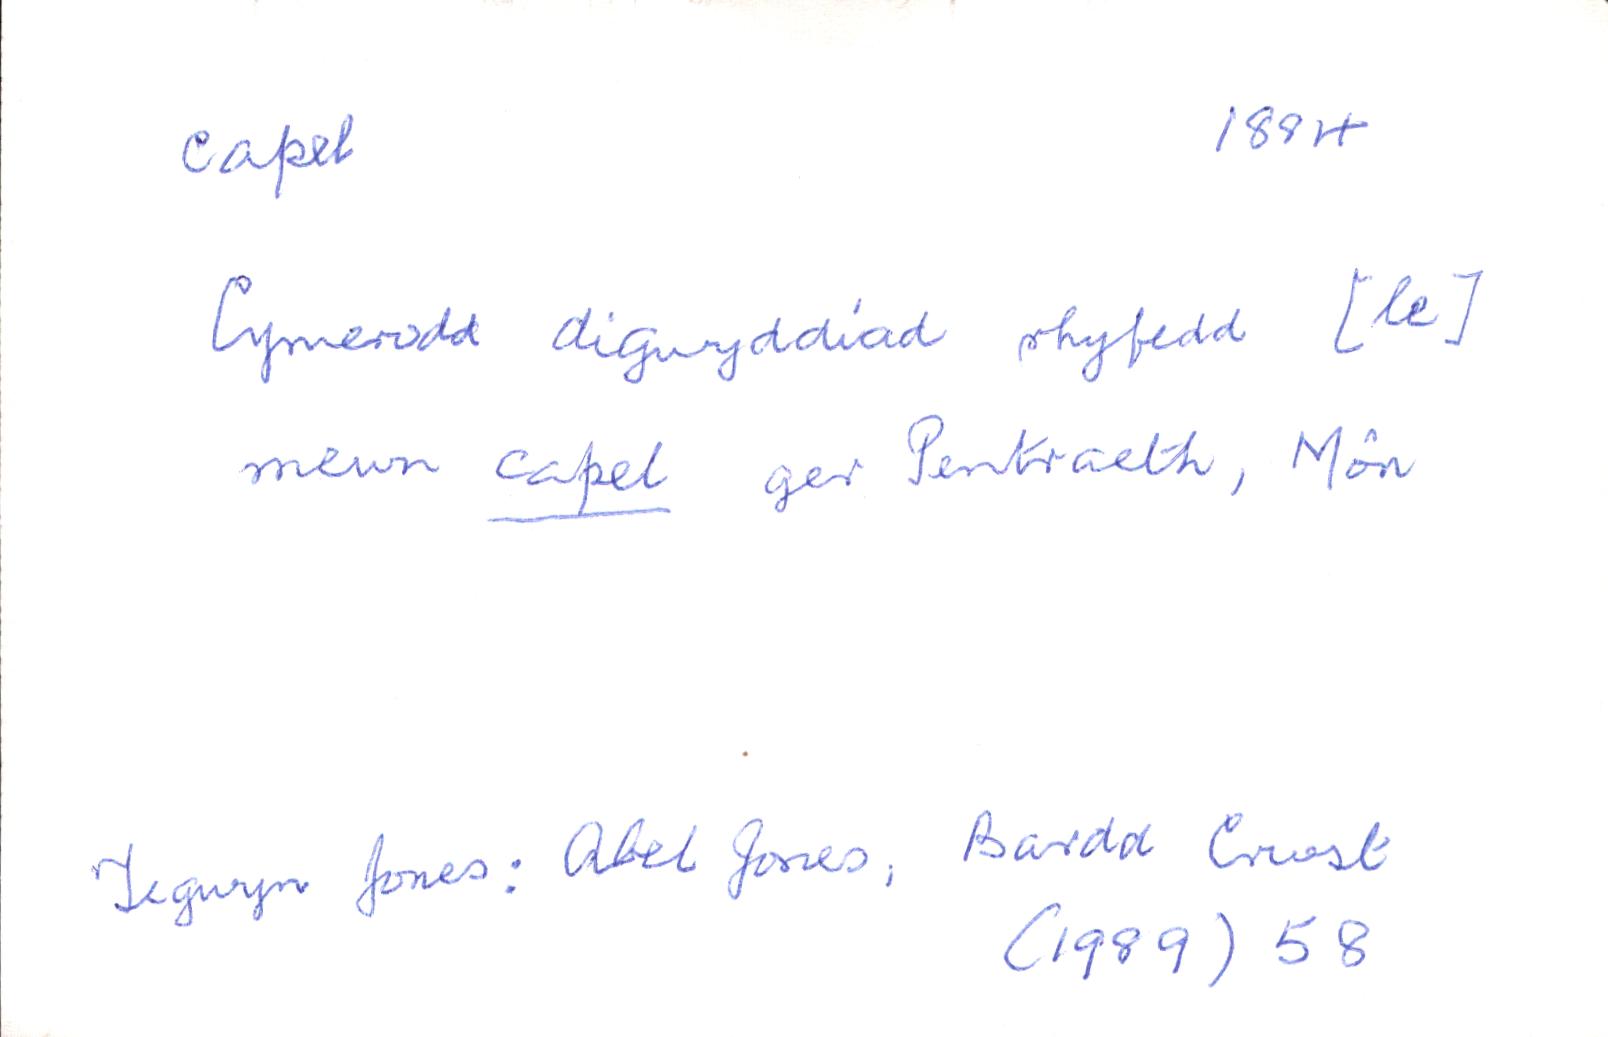 capel 1894
Cymerodd digwyddiad rhyfedd [le]
mewn capel ger Pentraeth, Môn
Tegwyn Jones: Abel Jones, Bardd Crwst
(1989) 58